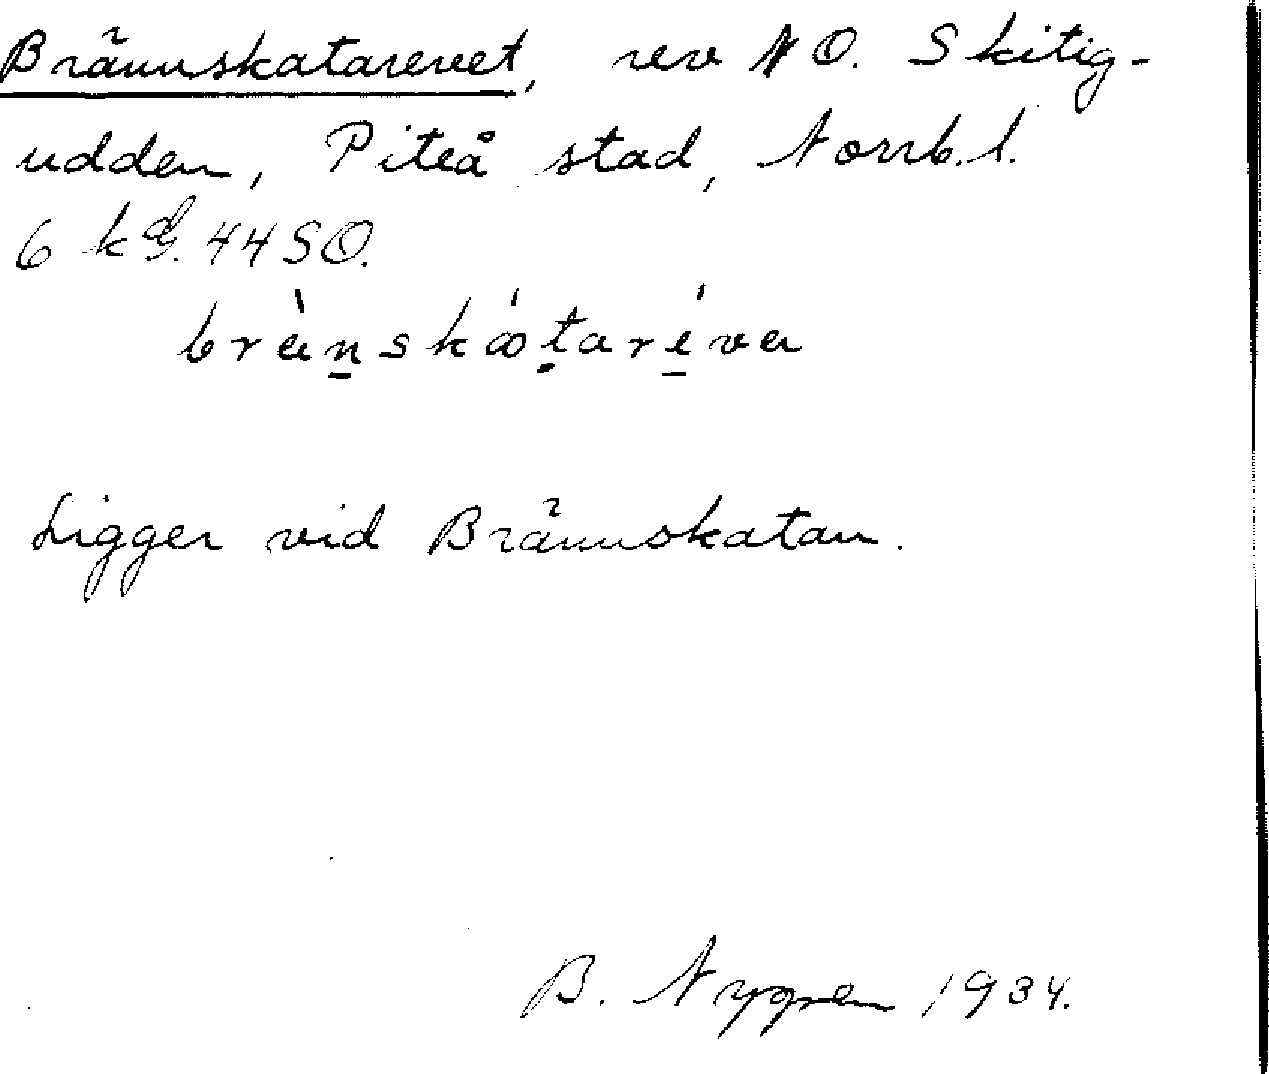 Brännskatarevet, rev NO. Skitig-
udden, Piteå stad, Norrb. l.
6 kd. 44 SO.
Ligger vid Brännskatan.
B. Nygren 1934.